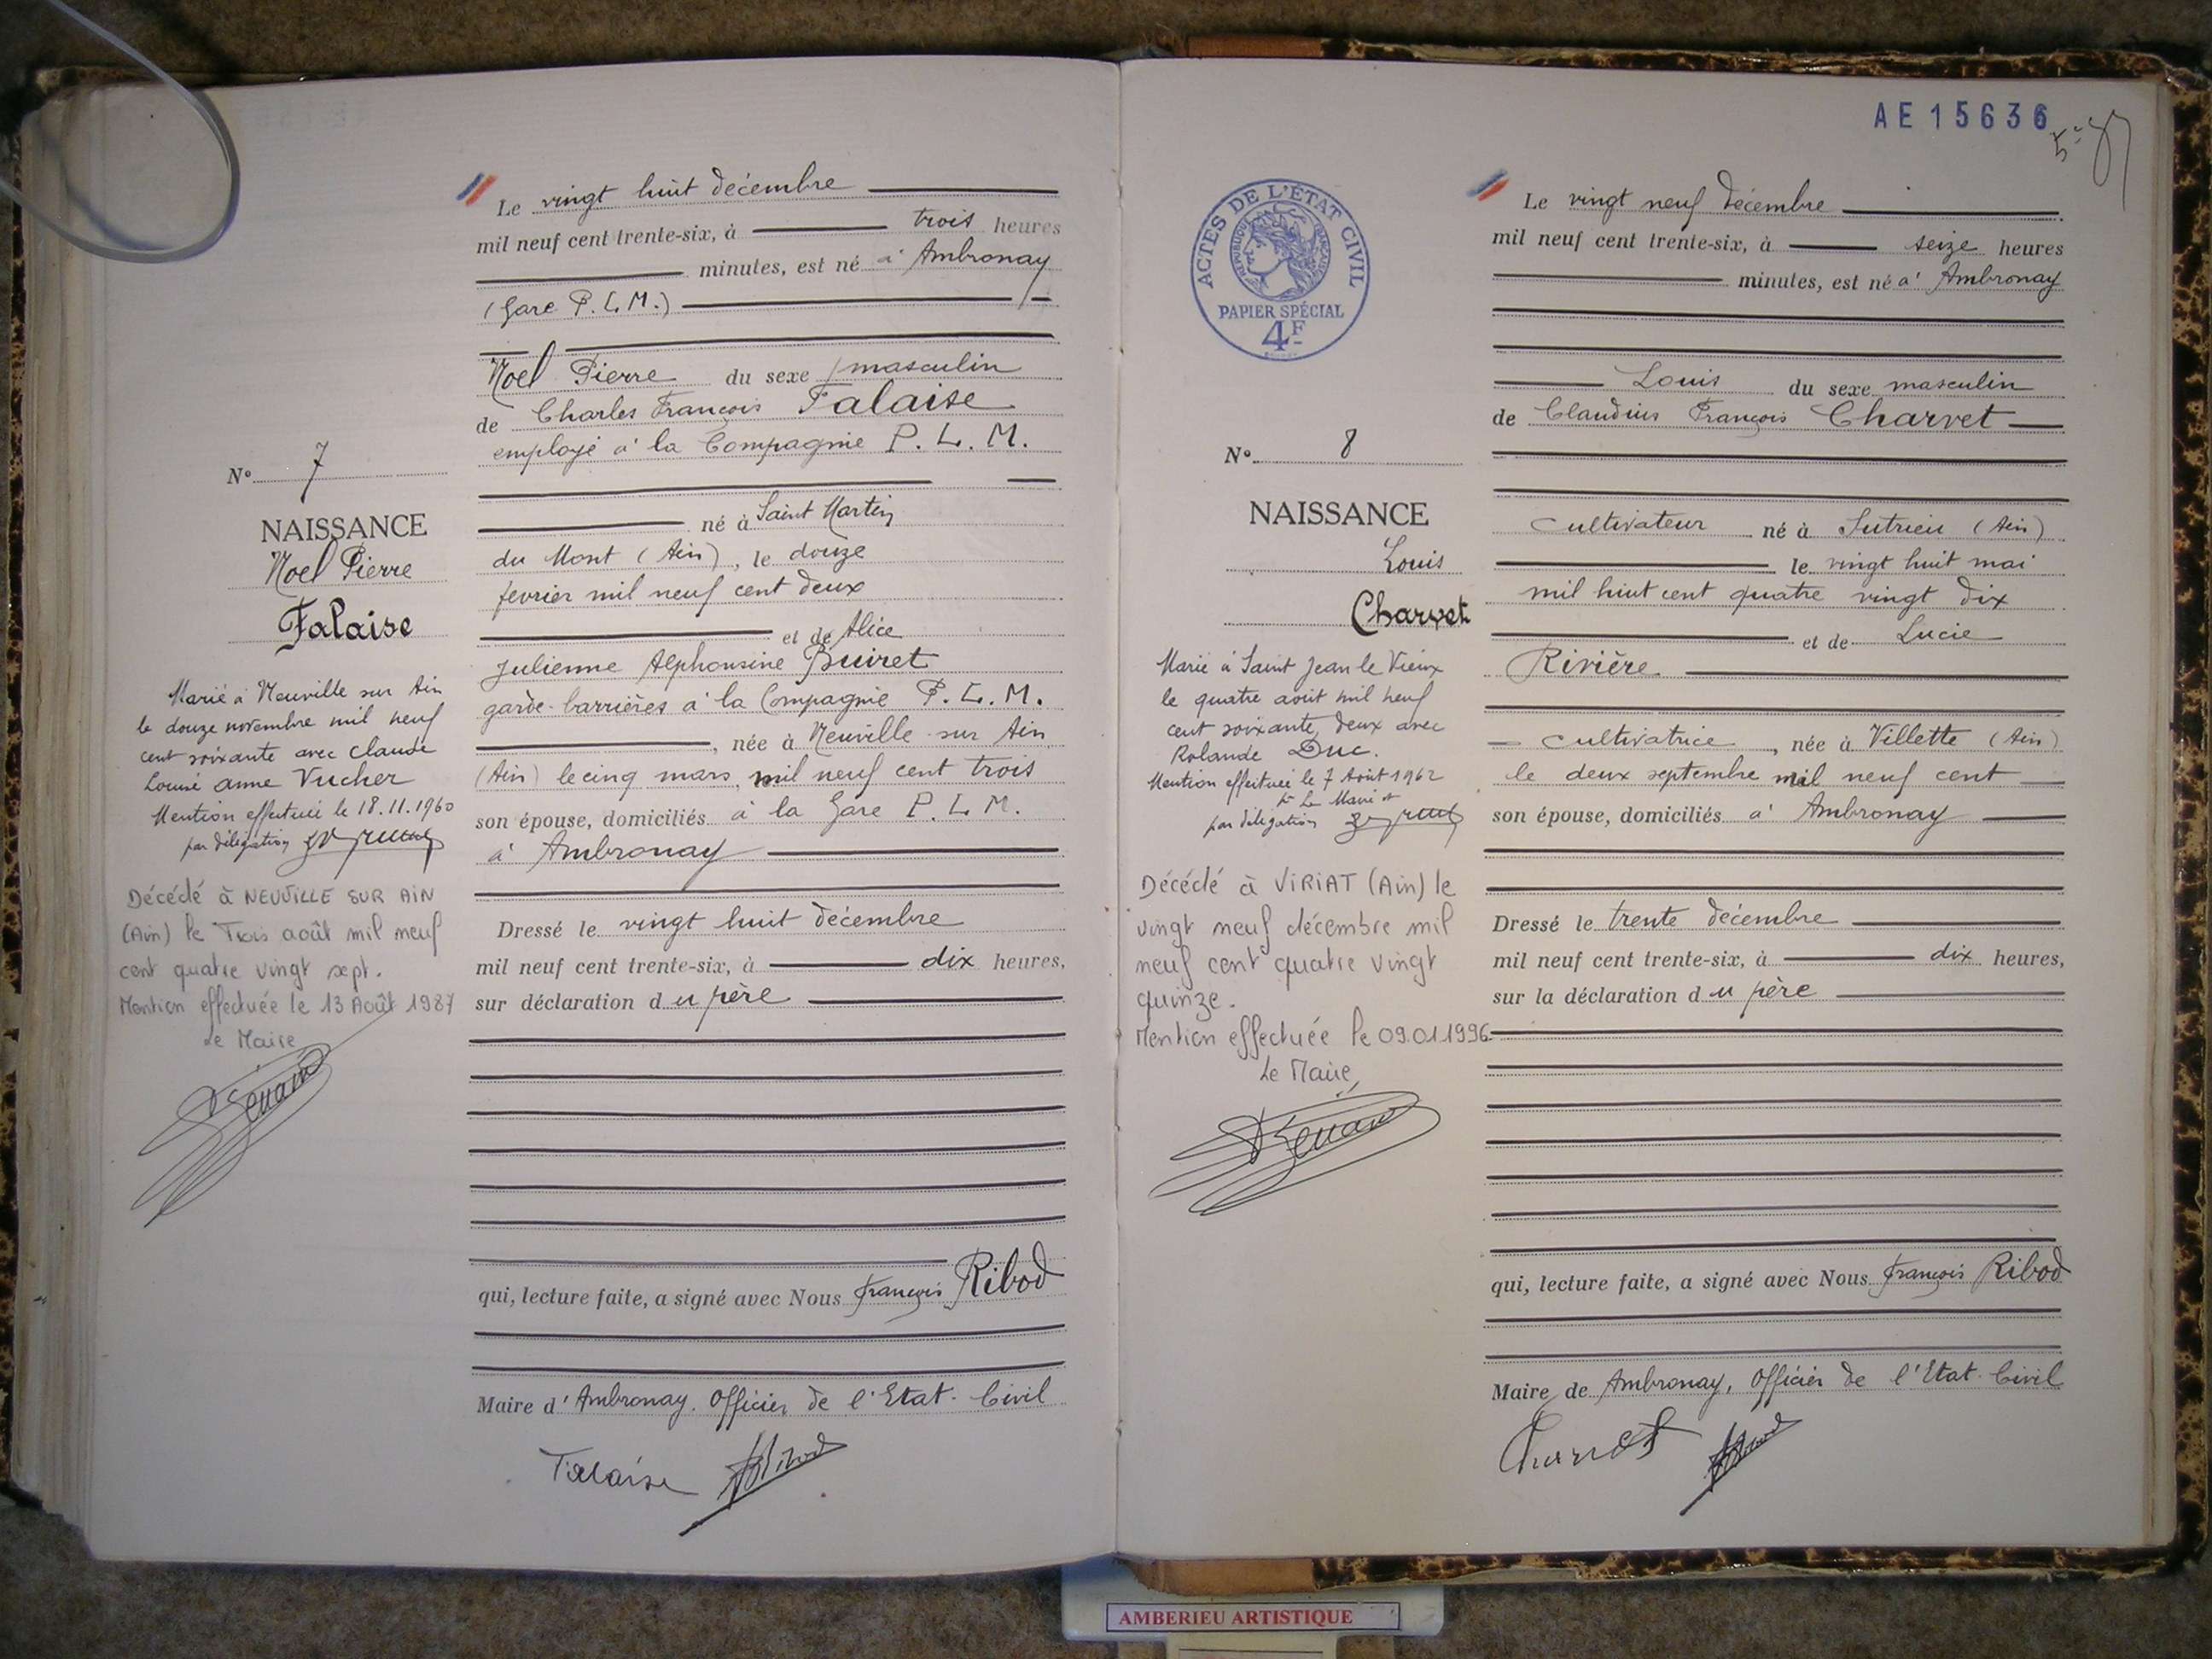 Le vingt huit décembre
mil neuf cent trente-six, à trois heures
minutes, est né à Ambronay
(Gare P.L.M.)
Noel Pierre du sexe masculin
de Charles François Falaise
employé à la Compagnie P. L. M.
né à Saint Martin
du Mont (Ain), le douze
février mil neuf cent deux
et de Alice
Julienne Alphonsine Buiret
garde-barrières à la Compagnie P. L. M.
, née à Neuville sur Ain
(Ain) le cinq mars mil neuf cent trois
son épouse, domiciliés à la Gare P. L. M.
à Ambronay
Dressé le vingt huit décembre
mil neuf cent trente-six, à dix heures,
sur déclaration du père
qui, lecture faite, a signé avec Nous François Ribod
Maire d'Ambronay. Officier de l'Etat-Civil
Falaise
N° 7
NAISSANCE
Noel Pierre
Falaise
Marié à Neuville sur Ain
le douze novembre mil neuf
cent soixante avec Claude
Louise Anne Vucher
Mention effectuée le 18.11.1960
par délégation
Décédé à NEUVILLE SUR AIN
(Ain) le Trois août mil neuf
cent quatre vingt sept.
Mention effectuée le 13 Août 1987
Le Maire
AE15636
ACTES DE L'ÉTAT CIVIL
RÉPUBLIQUE FRANÇAISE
PAPIER SPÉCIAL
4F
Le vingt neuf décembre
mil neuf cent trente-six, à seize heures
minutes, est né à Ambronay
Louis du sexe masculin
de Claudius François Charvet
cultivateur né à Sutrieu (Ain)
le vingt huit mai
mil huit cent quatre vingt dix
et de Lucie
Rivière
cultivatrice, née à Villette (Ain)
le deux septembre mil neuf cent
son épouse, domiciliés à Ambronay
Dressé le trente décembre
mil neuf cent trente-six, à dix heures,
sur la déclaration du père
qui, lecture faite, a signé avec Nous François Ribod
Maire de Ambronay, Officier de l'Etat-Civil
Charvet
N° 8
NAISSANCE
Louis
Charvet
Marié à Saint Jean le Vieux
le quatre août mil neuf
cent soixante deux avec
Rolande Duc.
Mention effectuée le 7 Août 1962
pr Le Maire et
par délégation
Décédé à VIRIAT (Ain) le
vingt neuf décembre mil
neuf cent quatre vingt
quinze.
Mention effectuée le 09.01.1996
Le Maire
AMBERIEU ARTISTIQUE